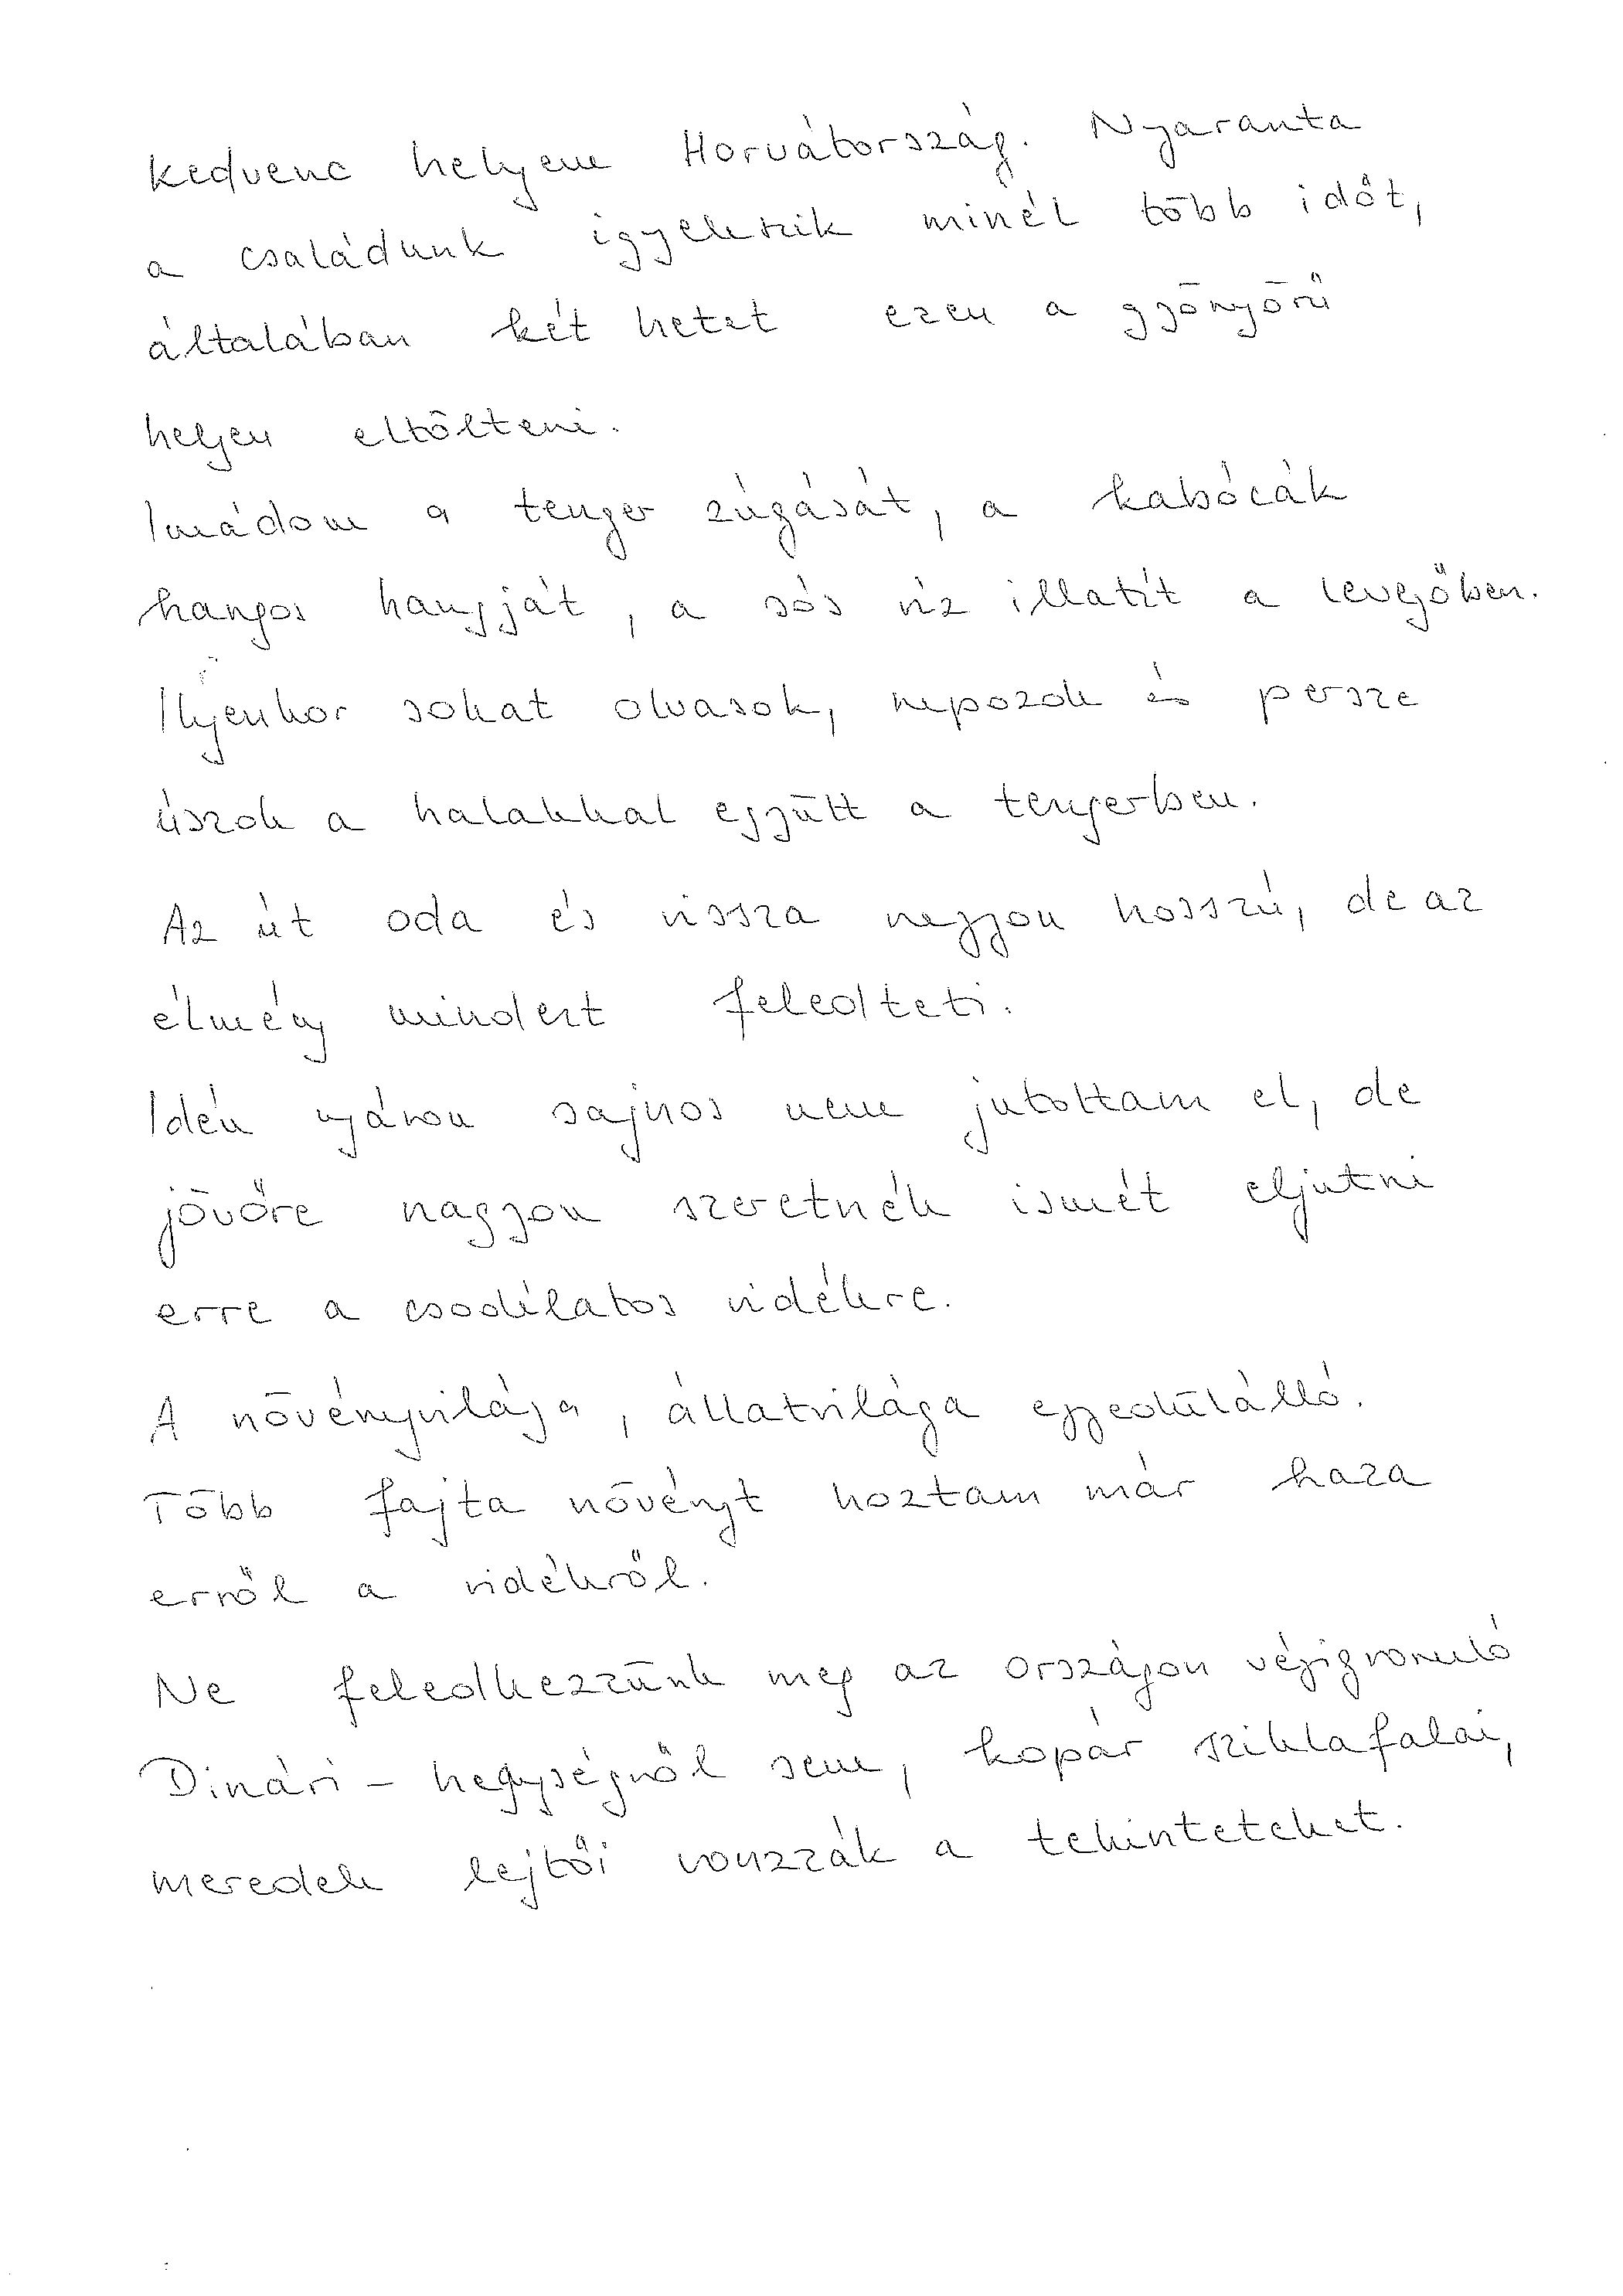 Kedvenc helyem Horvátország. Nyaranta
a családunk igyekszik minél több időt,
általában két hetet ezen a gyönyörű
helyen eltölteni.
Imádom a tenger zúgását, a kabócák
hangos hangját, a sós víz illatát a levegőben.
Ilyenkor sokat olvasok, napozok és persze
úszok a halakkal együtt a tengerben.
Az út oda és vissza nagyon hosszú, de az
élmény mindezt feledteti.
Idén nyáron sajnos nem jutottam el, de
jövőre nagyon szeretnék ismét eljutni
erre a csodálatos vidékre.
A növényvilága, állatvilága egyedülálló.
Több fajta növényt hoztam már haza
erről a vidékről.
Ne feledkezzünk meg az országon végigvonuló
Dinári-hegységről sem, kopár sziklafalai,
meredek lejtői vonzzák a tekinteteket.